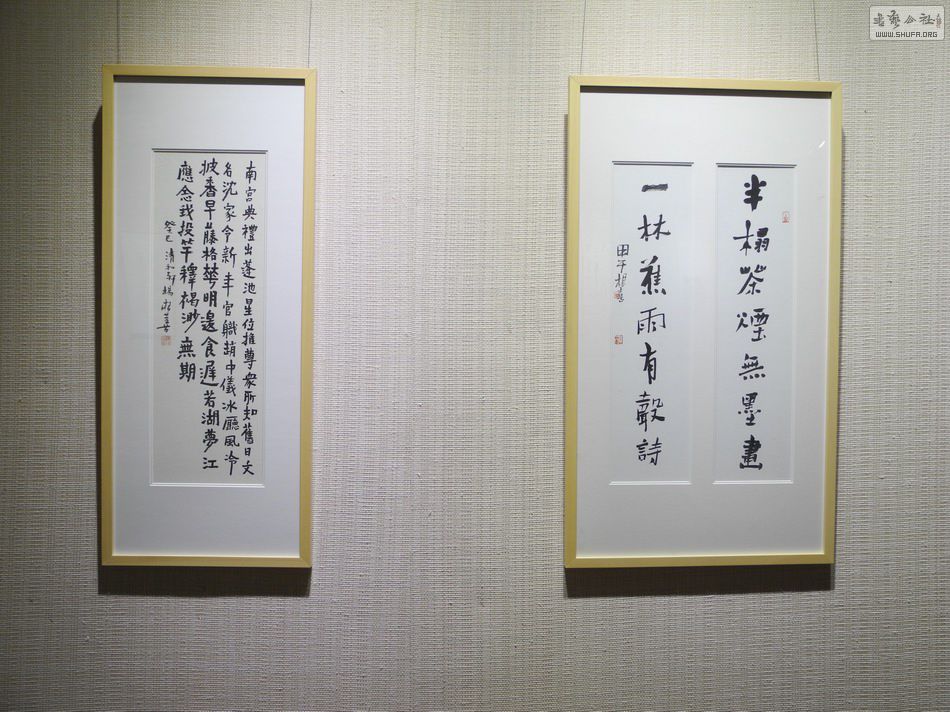 半榻茶煙無墨畫
一林蕉雨有聲詩
南宫典禮出蓬池星位推尊衆所知舊日文
名沈家令新年官職葫中儀冰廳風冷
披香早藤格華明邊食遲若湖夢江
應念我投竿釋褐渺無期
癸巳清和
書藝公社
WWW.SHUFA.ORG